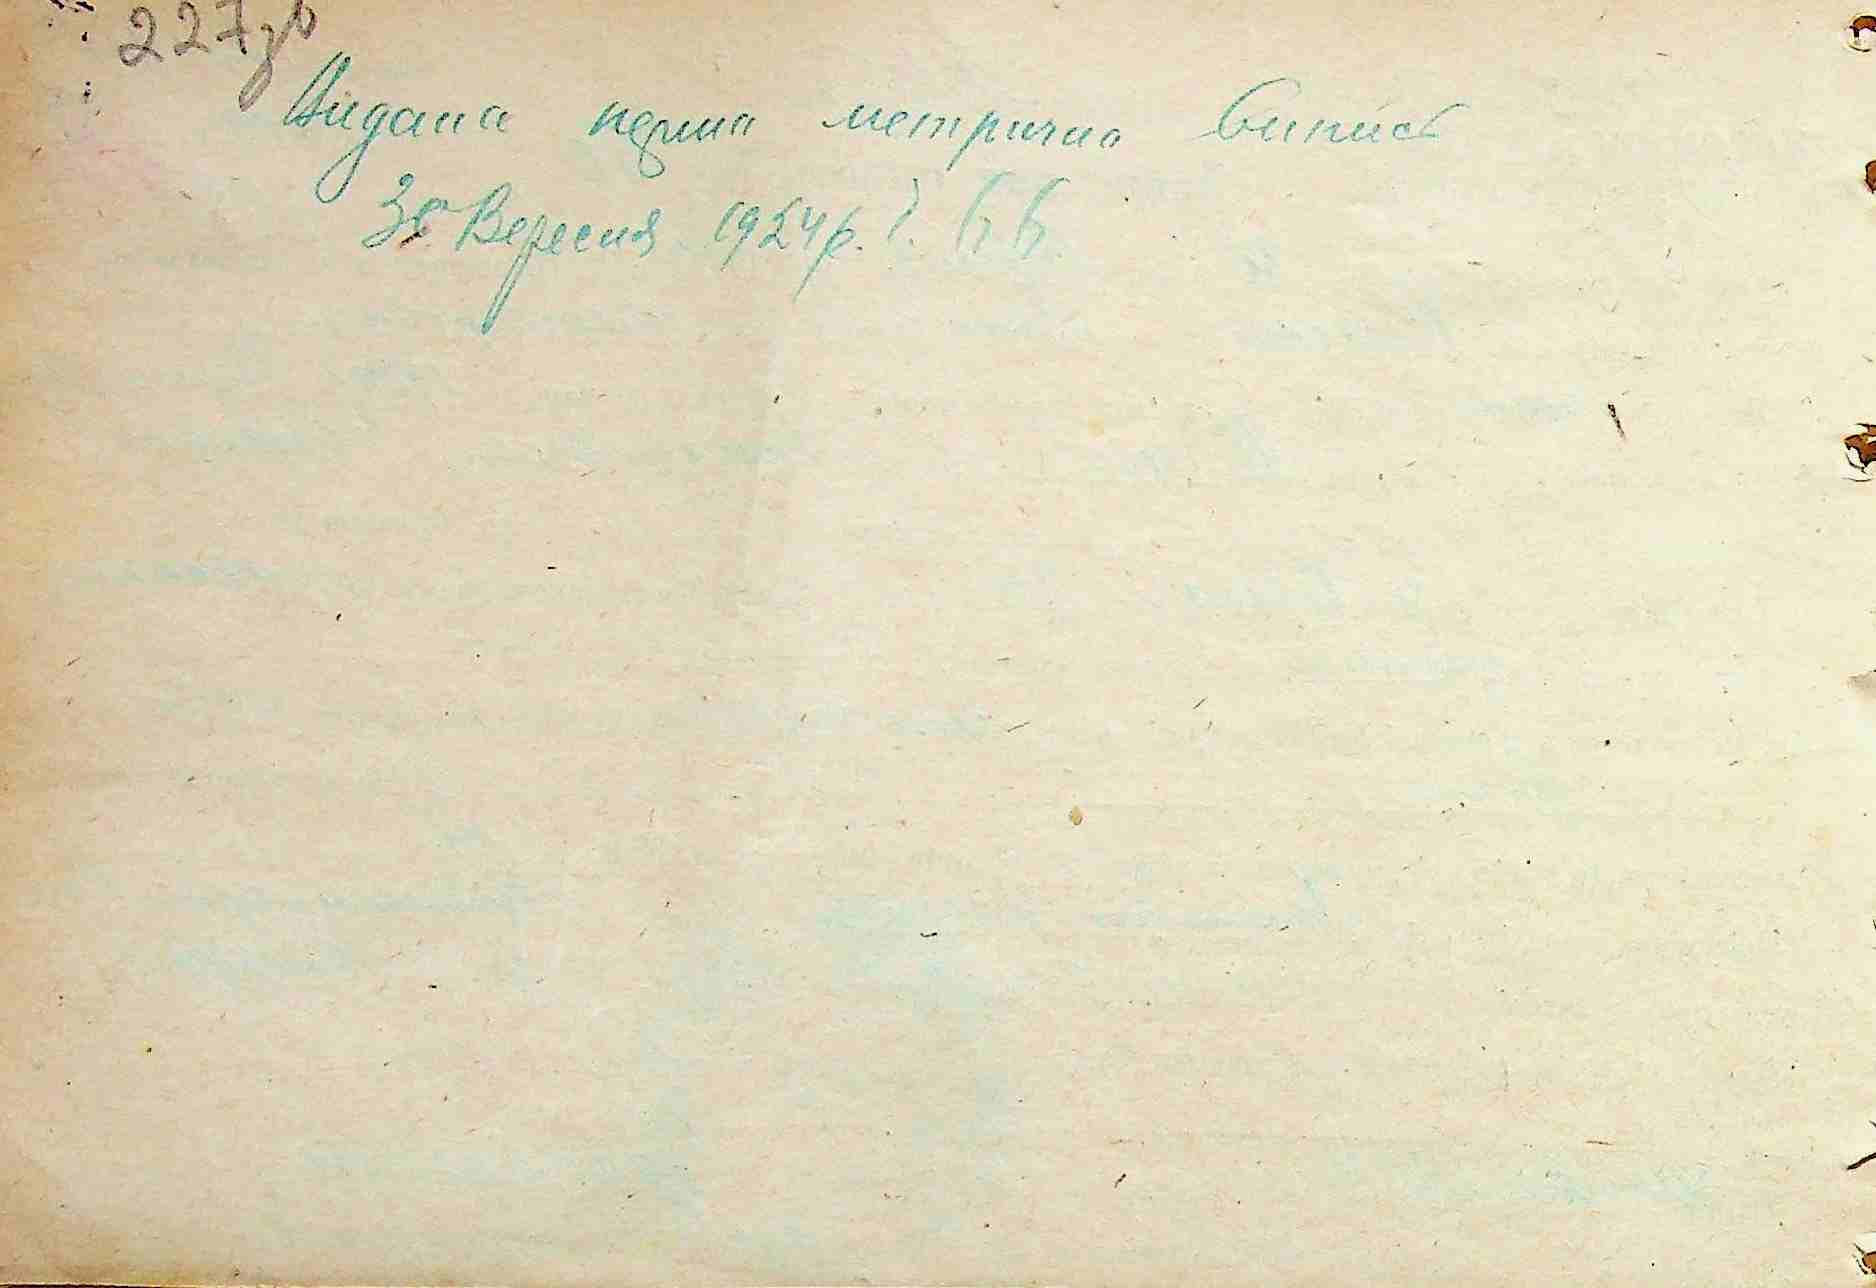 227зв
Видана перша метрична випись
30 Вересня 1924 р.